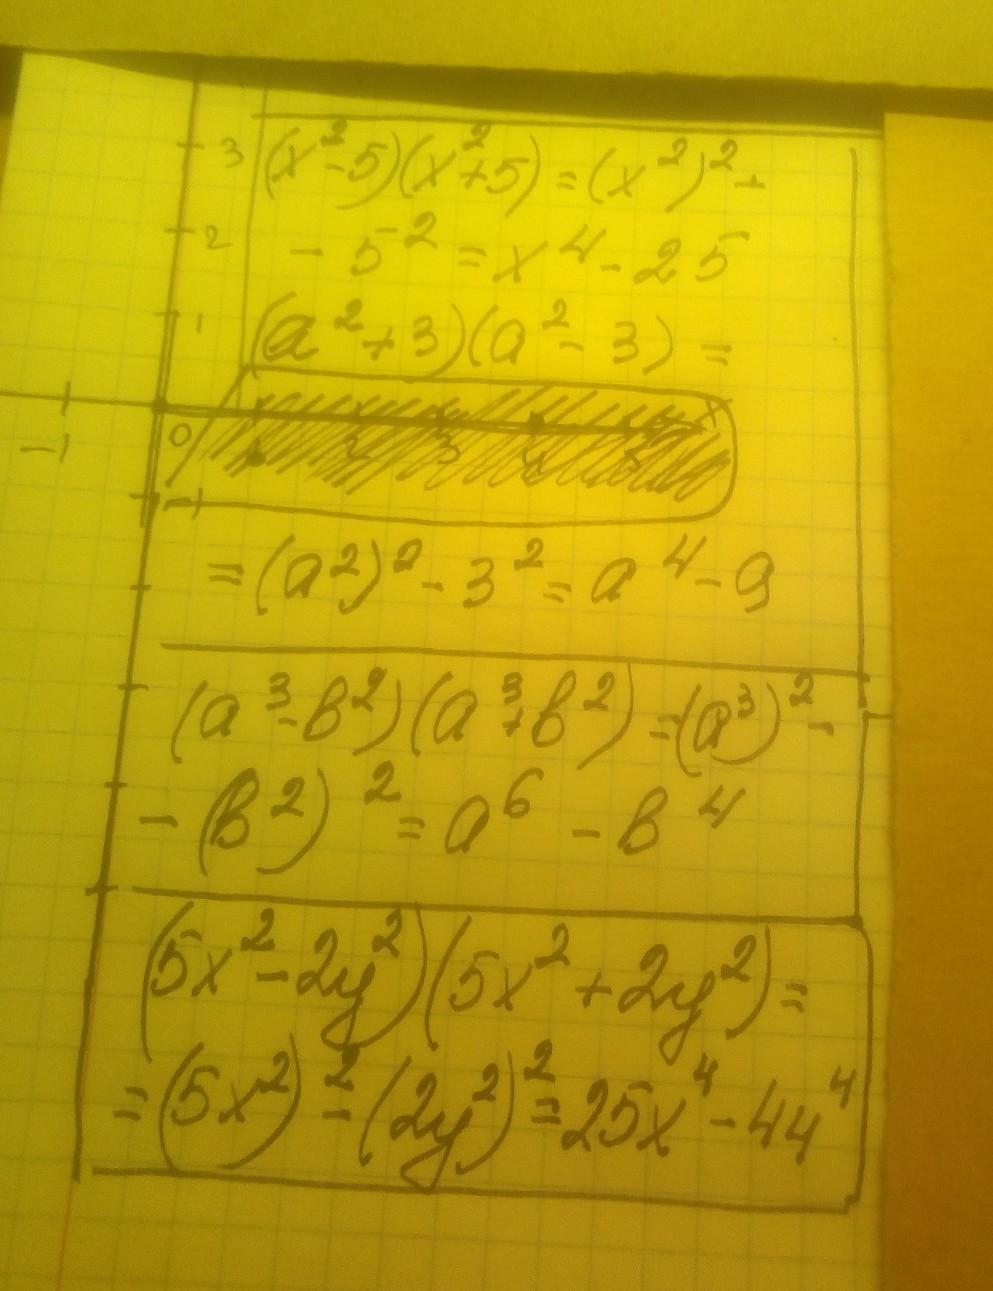 3 (x²-5)(x²+5) = (x²)² -
2 - 5² = x⁴ - 25
1 (a² + 3)(a² - 3) =
0 2 3 4 5
-1 -1
= (a²)² - 3² = a⁴ - 9
(a³ - b²)(a³ + b²) = (a³)² -
- (b²)² = a⁶ - b⁴
(5x² - 2y²)(5x² + 2y²) =
= (5x²)² - (2y²)² = 25x⁴ - 4y⁴